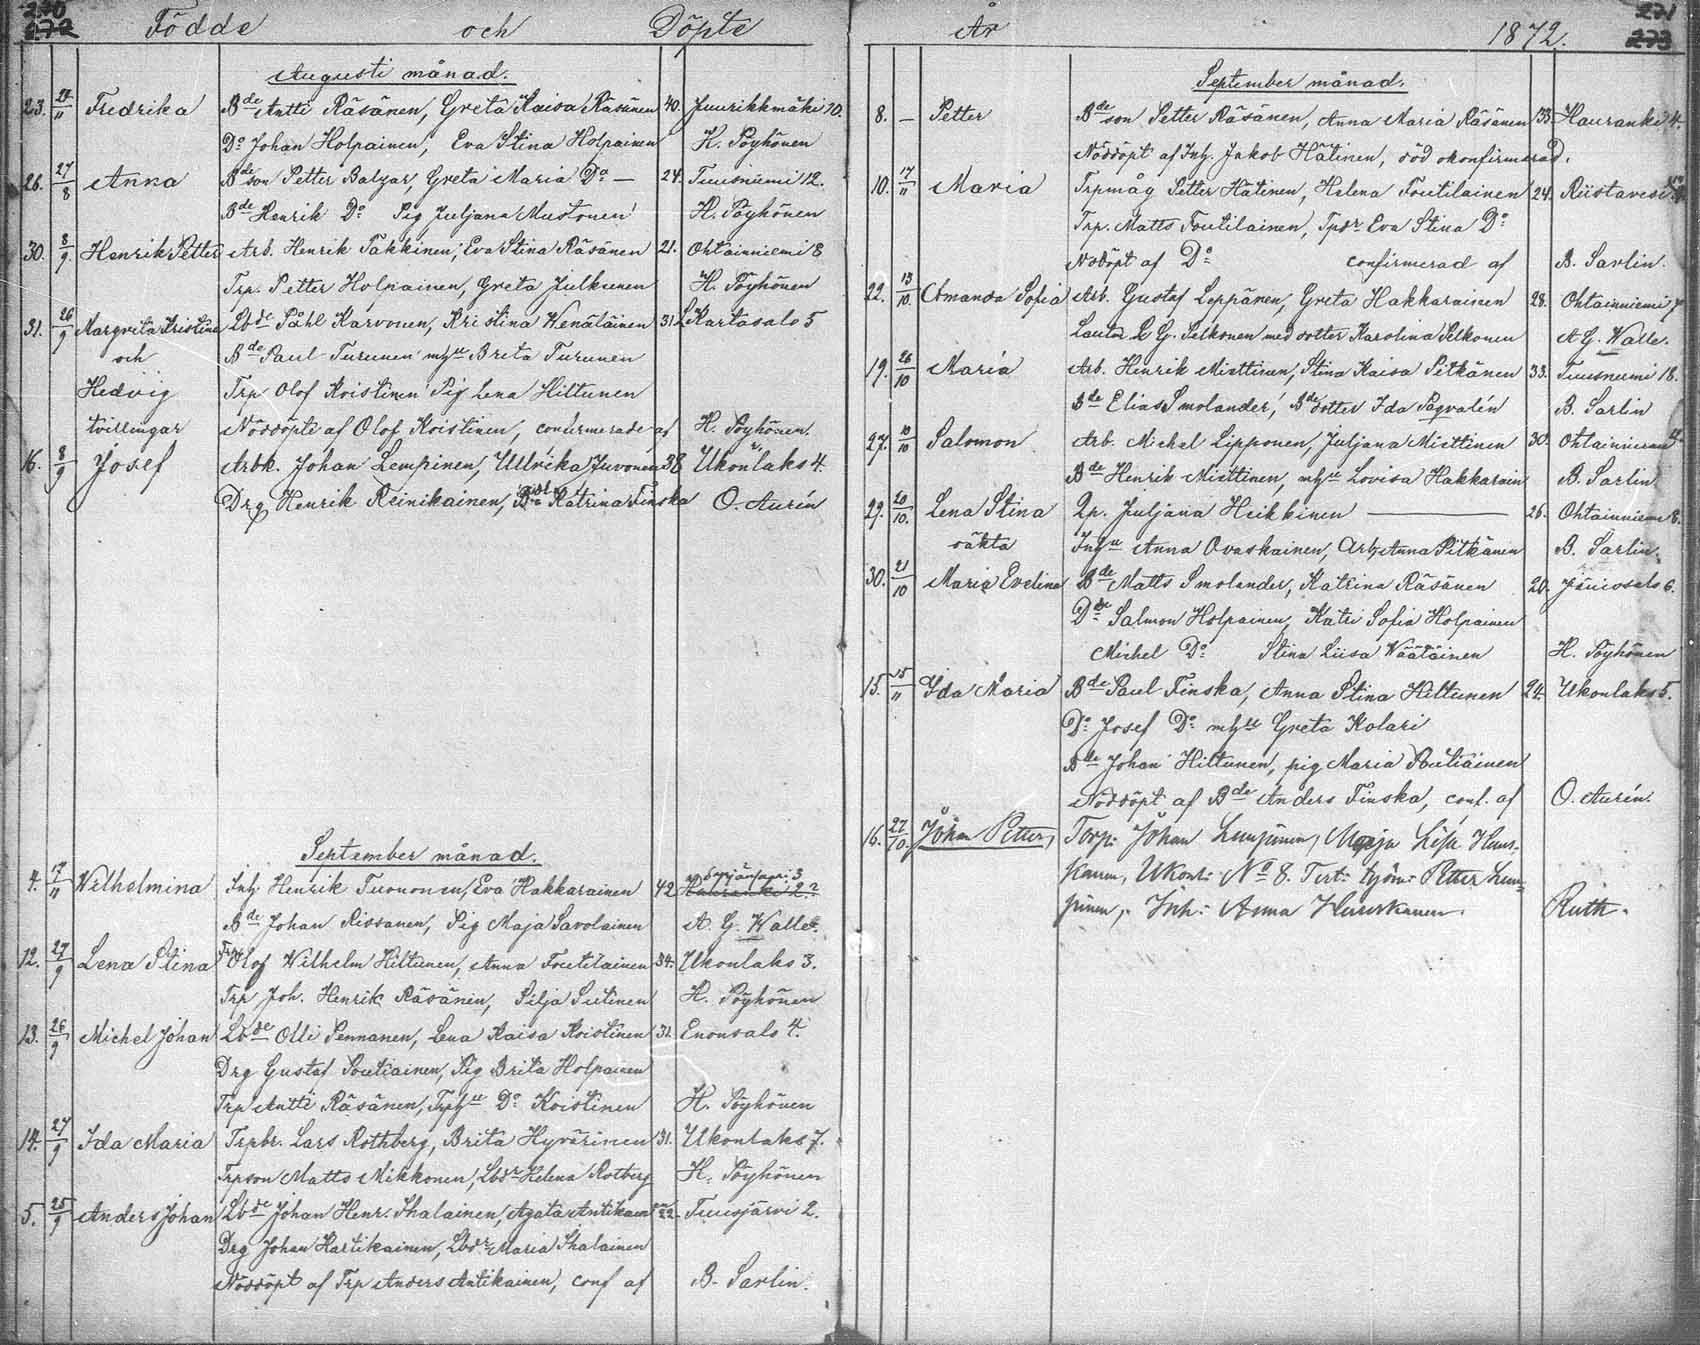 270 271
272 Födde och Döpte År 1872. 273
Augusti månad.
23. 24/11 Fredrika Bde Antti Räsänen, Greta Kaisa Räsänen 40. Juurikkmäki 10.
Do Johan Holpainen, Eva Stina Holpainen H. Pöyhönen
26. 27/8 Anna Bdeson Petter Balzar, Greta Maria Do — 24. Tuusniemi 12.
Bde Henrik Do Pig Juljana Mustonen H. Pöyhönen
30. 8/9. Henrik Petter Arb. Henrik Pakkinen, Eva Stina Räsänen 21. Ohtainniemi 8
Trp. Petter Holpainen, Greta Julkunen H. Pöyhönen
31. 26/9 Margreta Kristina Lbde Påhl Karvonen, Kristina Wenäläinen 31. Kartasalo 5
och Bde Paul Turunen mhu Brita Turunen
Hedvig Trp Olof Koistinen Pig Lena Hiltunen
tvillingar Nöddöpte af Olof Koistinen, confirmerade af H. Pöyhönen.
16. 8/9 Josef Arbk. Johan Lempinen, Ullrika Juvonen 38 Ukonlaks 4.
Drg Henrik Reinikainen, Katrina Finska O. Aurén
September månad.
4. 17/11 Wilhelmina Inh. Henrik Tuononen, Eva Hakkarainen 42 3
Bde Johan Rissanen, Pig Maja Savolainen A. G. Walle.
12. 27/9 Lena Stina Trp Olof Wilhelm Hiltunen, Anna Foutilainen 34. Ukonlaks 3.
Trp Joh. Henrik Räsänen, Silja Sutinen H. Pöyhönen
13. 26/9 Michel Johan Lbde Olli Pennanen, Lena Kaisa Koistinen 31. Enonsalo 4.
Drg Gustaf Poutiainen, Pig Brita Holpainen
Trp Antti Räsänen, Trphu Do Koistinen H. Pöyhönen
14. 27/9 Ida Maria Trpbr. Lars Rothberg, Brita Hyvärinen 31. Ukonlaks 7.
Trpson Matts Mikkonen, Lbdr Helena Rotberg H. Pöyhönen
5. 25/9 Anders Johan Lbde Johan Henr. Ihalainen, Agata Antikain 22. Tuusjärvi 2.
Drg Johan Hartikainen, Lbdr Maria Ihalainen
Nöddöpt af Trp Anders Antikainen, conf af B. Sarlin.
September månad.
8. — Petter Bdeson Petter Räsänen, Anna Maria Räsänen 33 Hauranki 4.
Nöddöpt af Inh. Jakob Hätinen, död okonfirmerad.
10. 17/11 Maria Trpmåg Petter Hätinen, Helena Foutilainen 24. Riistavesi
Trp. Matts Foutilainen, Tpdr Eva Stina Do
Nödöpt af Do confirmerad af B. Sarlin.
22. 13/10. Amanda Sofia Arb. Gustaf Leppänen, Greta Hakkarainen 28. Ohtainniemi 7
G. Pelkonen med dotter Karolina Pelkonen A G. Walle.
19. 26/10 Maria Arb. Henrik Miettinen, Stina Kaisa Pitkänen 33. Tuusniemi 18.
Bde Elias Smolander, Bdedotter Ida Pagvalén B. Sarlin
27. 10/10 Salomon Arb. Michel Lipponen, Juljana Miettinen 30. Ohtainniemi
Bde Henrik Miettinen, mhu Lovisa Hakkarain B. Sarlin
29. 20/10. Lena Stina Qp. Juljana Heikkinen — 26. Ohtainniemi 8.
oäkta Inhu Anna Ovaskainen, Arb. Anna Pitkänen B. Sarlin.
30. 21/10 Maria Evelina Bde Matts Smolander, Katrina Räsänen 20. Jänissalo 6.
Do Salmon Holpainen, Katri Sofia Holpainen
Michel Do Stina Liisa Wäätäinen H. Pöyhönen
15. 15/11 Ida Maria Bde Paul Finska, Anna Stina Hiltunen 24. Ukonlaks 5.
Do Josef Do mhu Greta Kolari
Bde Johan Hiltunen, pig Maria Poutiainen
Nöddöpt af Bde Anders Finska, conf. af O. Aurén.
16. 27/10. Johan Petter, Torp. Johan Lempinen, Maja Lisa Hens-
kanen, Ukonl: No 8. Test: tjän: Petter Lem-
pinen, Inh: Anna Heiskanen. Ruth.